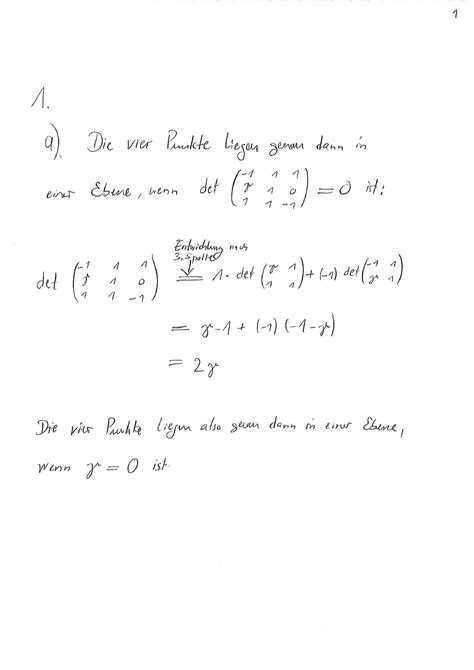 1
1.
a) Die vier Punkte liegen genau dann in
einer Ebene, wenn det (-1 1 1; γ 1 0; 1 1 -1) = 0 ist:
Entwicklung nach
3. Spalte
det (-1 1 1; γ 1 0; 1 1 -1) = 1 · det (γ 1; 1 1) + (-1) det (-1 1; γ 1)
= γ - 1 + (-1) (-1 - γ)
= 2γ
Die vier Punkte liegen also genau dann in einer Ebene,
wenn γ = 0 ist.